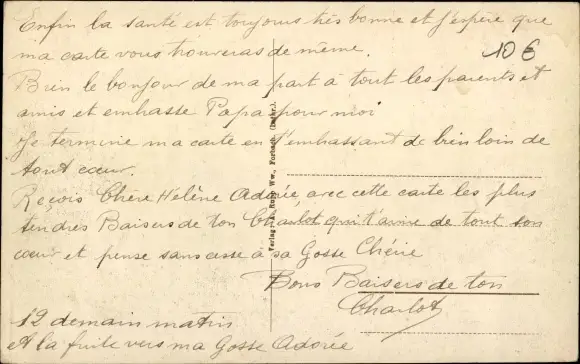 Enfin la santé est toujours très bonne et j'espère que
ma carte vous trouveras de même.
10 €
Bien le bonjour de ma part à tout les parents et
amis et embrasse Papa pour moi
Je termine ma carte en t'embrassant de bien loin de
tout cœur.
Reçois Chère Hélène Adorée, avec cette carte les plus
tendres Baisers de ton Charlot qui t'aime de tout son
cœur et pense sans cesse à sa Gosse Chérie
Bons Baisers de ton
Charlot
12 demain matin
A la fuite vers ma Gosse Adorée
Verlag: Ww., Forbach (Lothr.)